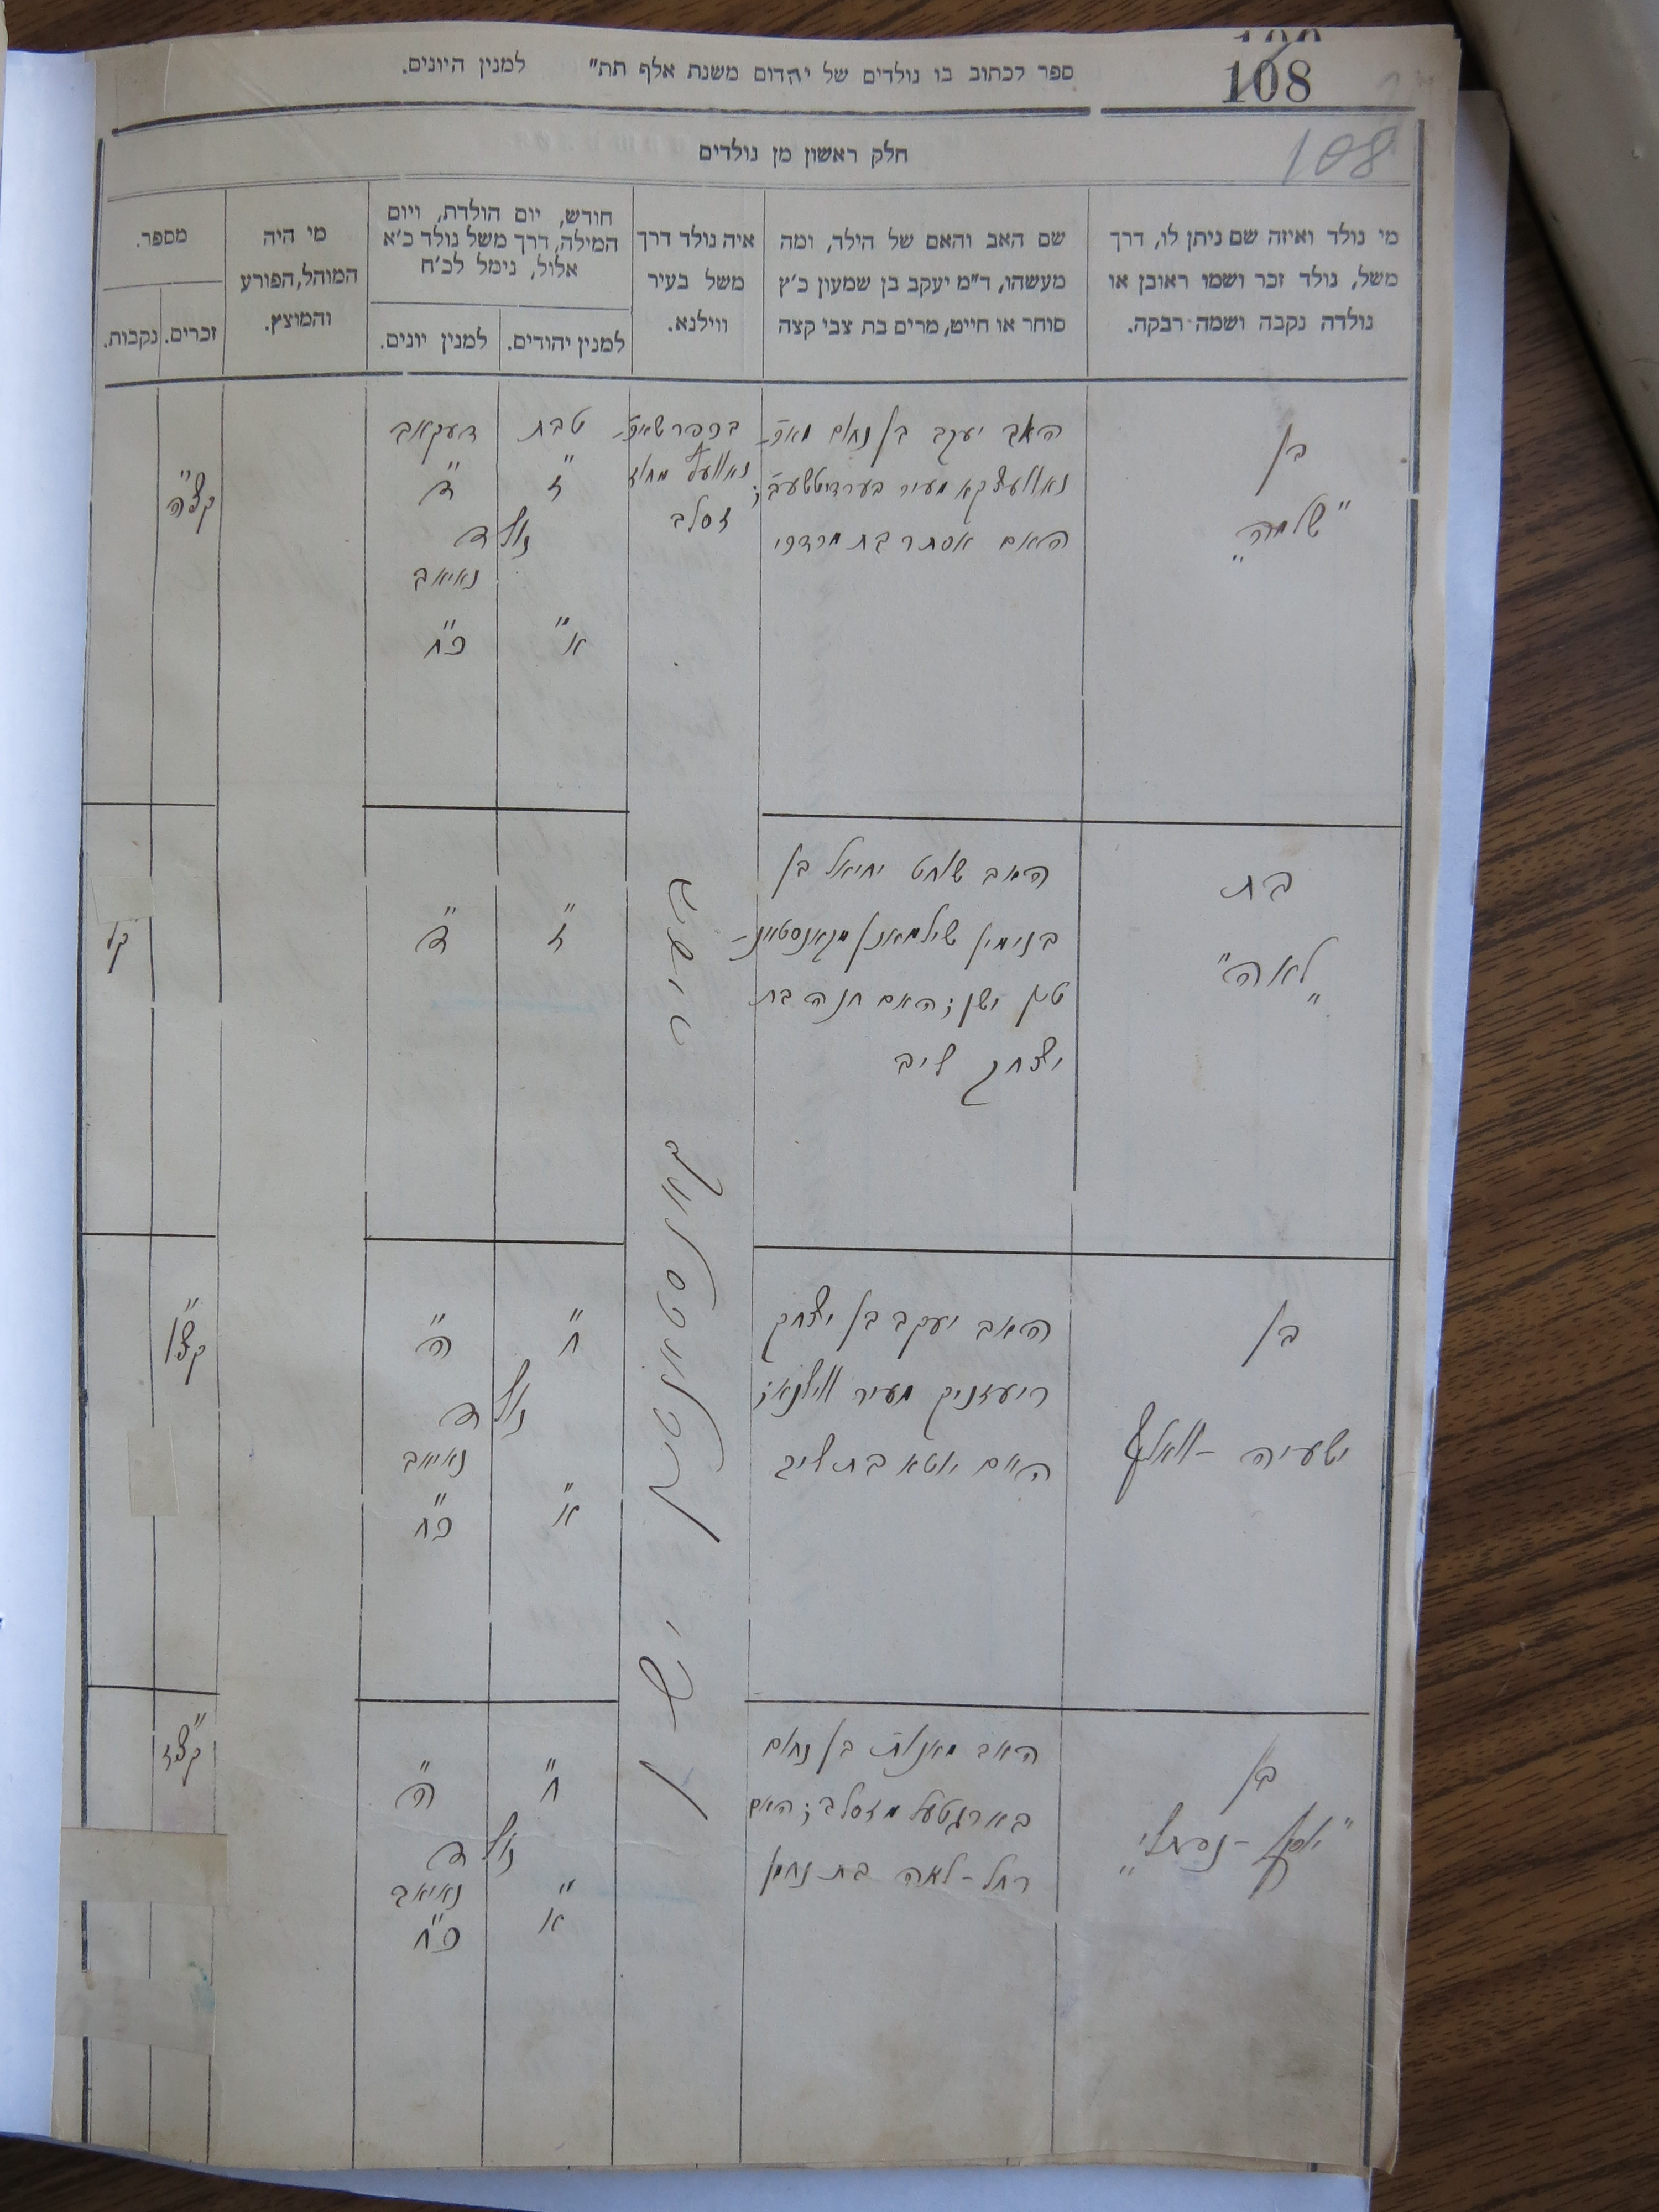 108
ספר לכתוב בו נולדים של יהדום משנת אלף תת״ למנין היונים.
108
חלק ראשון מן נולדים
מי נולד ואיזה שם ניתן לו, דרך
משל, נולד זכר ושמו ראובן או
נולדה נקבה ושמה רבקה.
שם האב והאם של הילד, ומה
מעשהו, ד״מ יעקב בן שמעון כ׳ץ
סוחר או חייט, מרים בת צבי קצה
איה נולד דרך
משל בעיר
ווילנא.
חודש, יום הולדת, ויום
המילה, דרך משל נולד כ׳א
אלול, נימל לכ׳ח
למנין יהודים.
למנין יונים.
מי היה
המוהל, הפורע
והמוצץ.
מספר.
זכרים.
נקבות.
בן
"שלמה"
האב יעקב בן נחום
מעיר בערדיטשעב;
האם אסתר בת מרדכי
בכפר
מחוז
זסלב
טבת
ז"
א"
דעקאב
ד"
נולד
נאיאב
כ"ח
קצ"ה
בת
"לאה"
האב שוחט יחיאל בן
בנימין
טין ישן; האם חנה בת
יצחק ליב
ז"
ד"
קל
בעיר קאנסטאנטין ישן
בן
ישעיה - וואלף
האב יעקב בן יצחק
רעזניק מעיר ווילנא;
האם יוטא בת ליב
ח"
א"
ה"
נולד
נאיאב
כ"ח
קצ"ו
בן
"יוסף - נפתלי"
האב בן נחום
מזסלב; האם
רחל - לאה בת נחמן
ח"
א"
ה"
נולד
נאיאב
כ"ח
קצ"ז